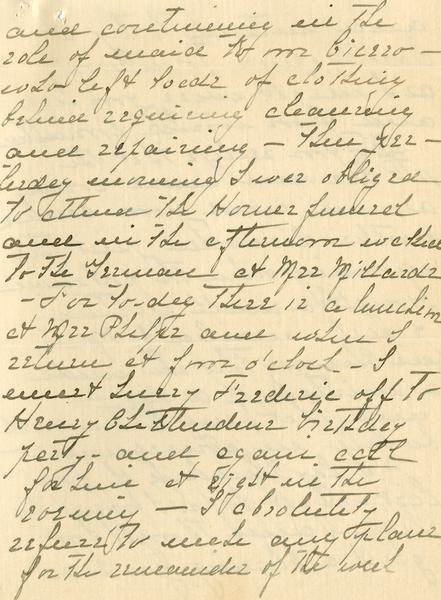 and continuing in the
role of maid to mr Cicero –
who left loads of clothing
behind requiring cleaning
and repairing – Then yes-
terday morning I was obliged
to attend the Horner funeral
and in the afternoon walked
to the German at Mrs Millards
– For to-day there is a lunch
at Mrs Phelps and when I
return at four o'clock – I
must hurry Frederic off to
Henry Chittendens birthday
party – and again call
for him at eight in the
evening – I absolutely
refuse to make any plans
for the remainder of the week